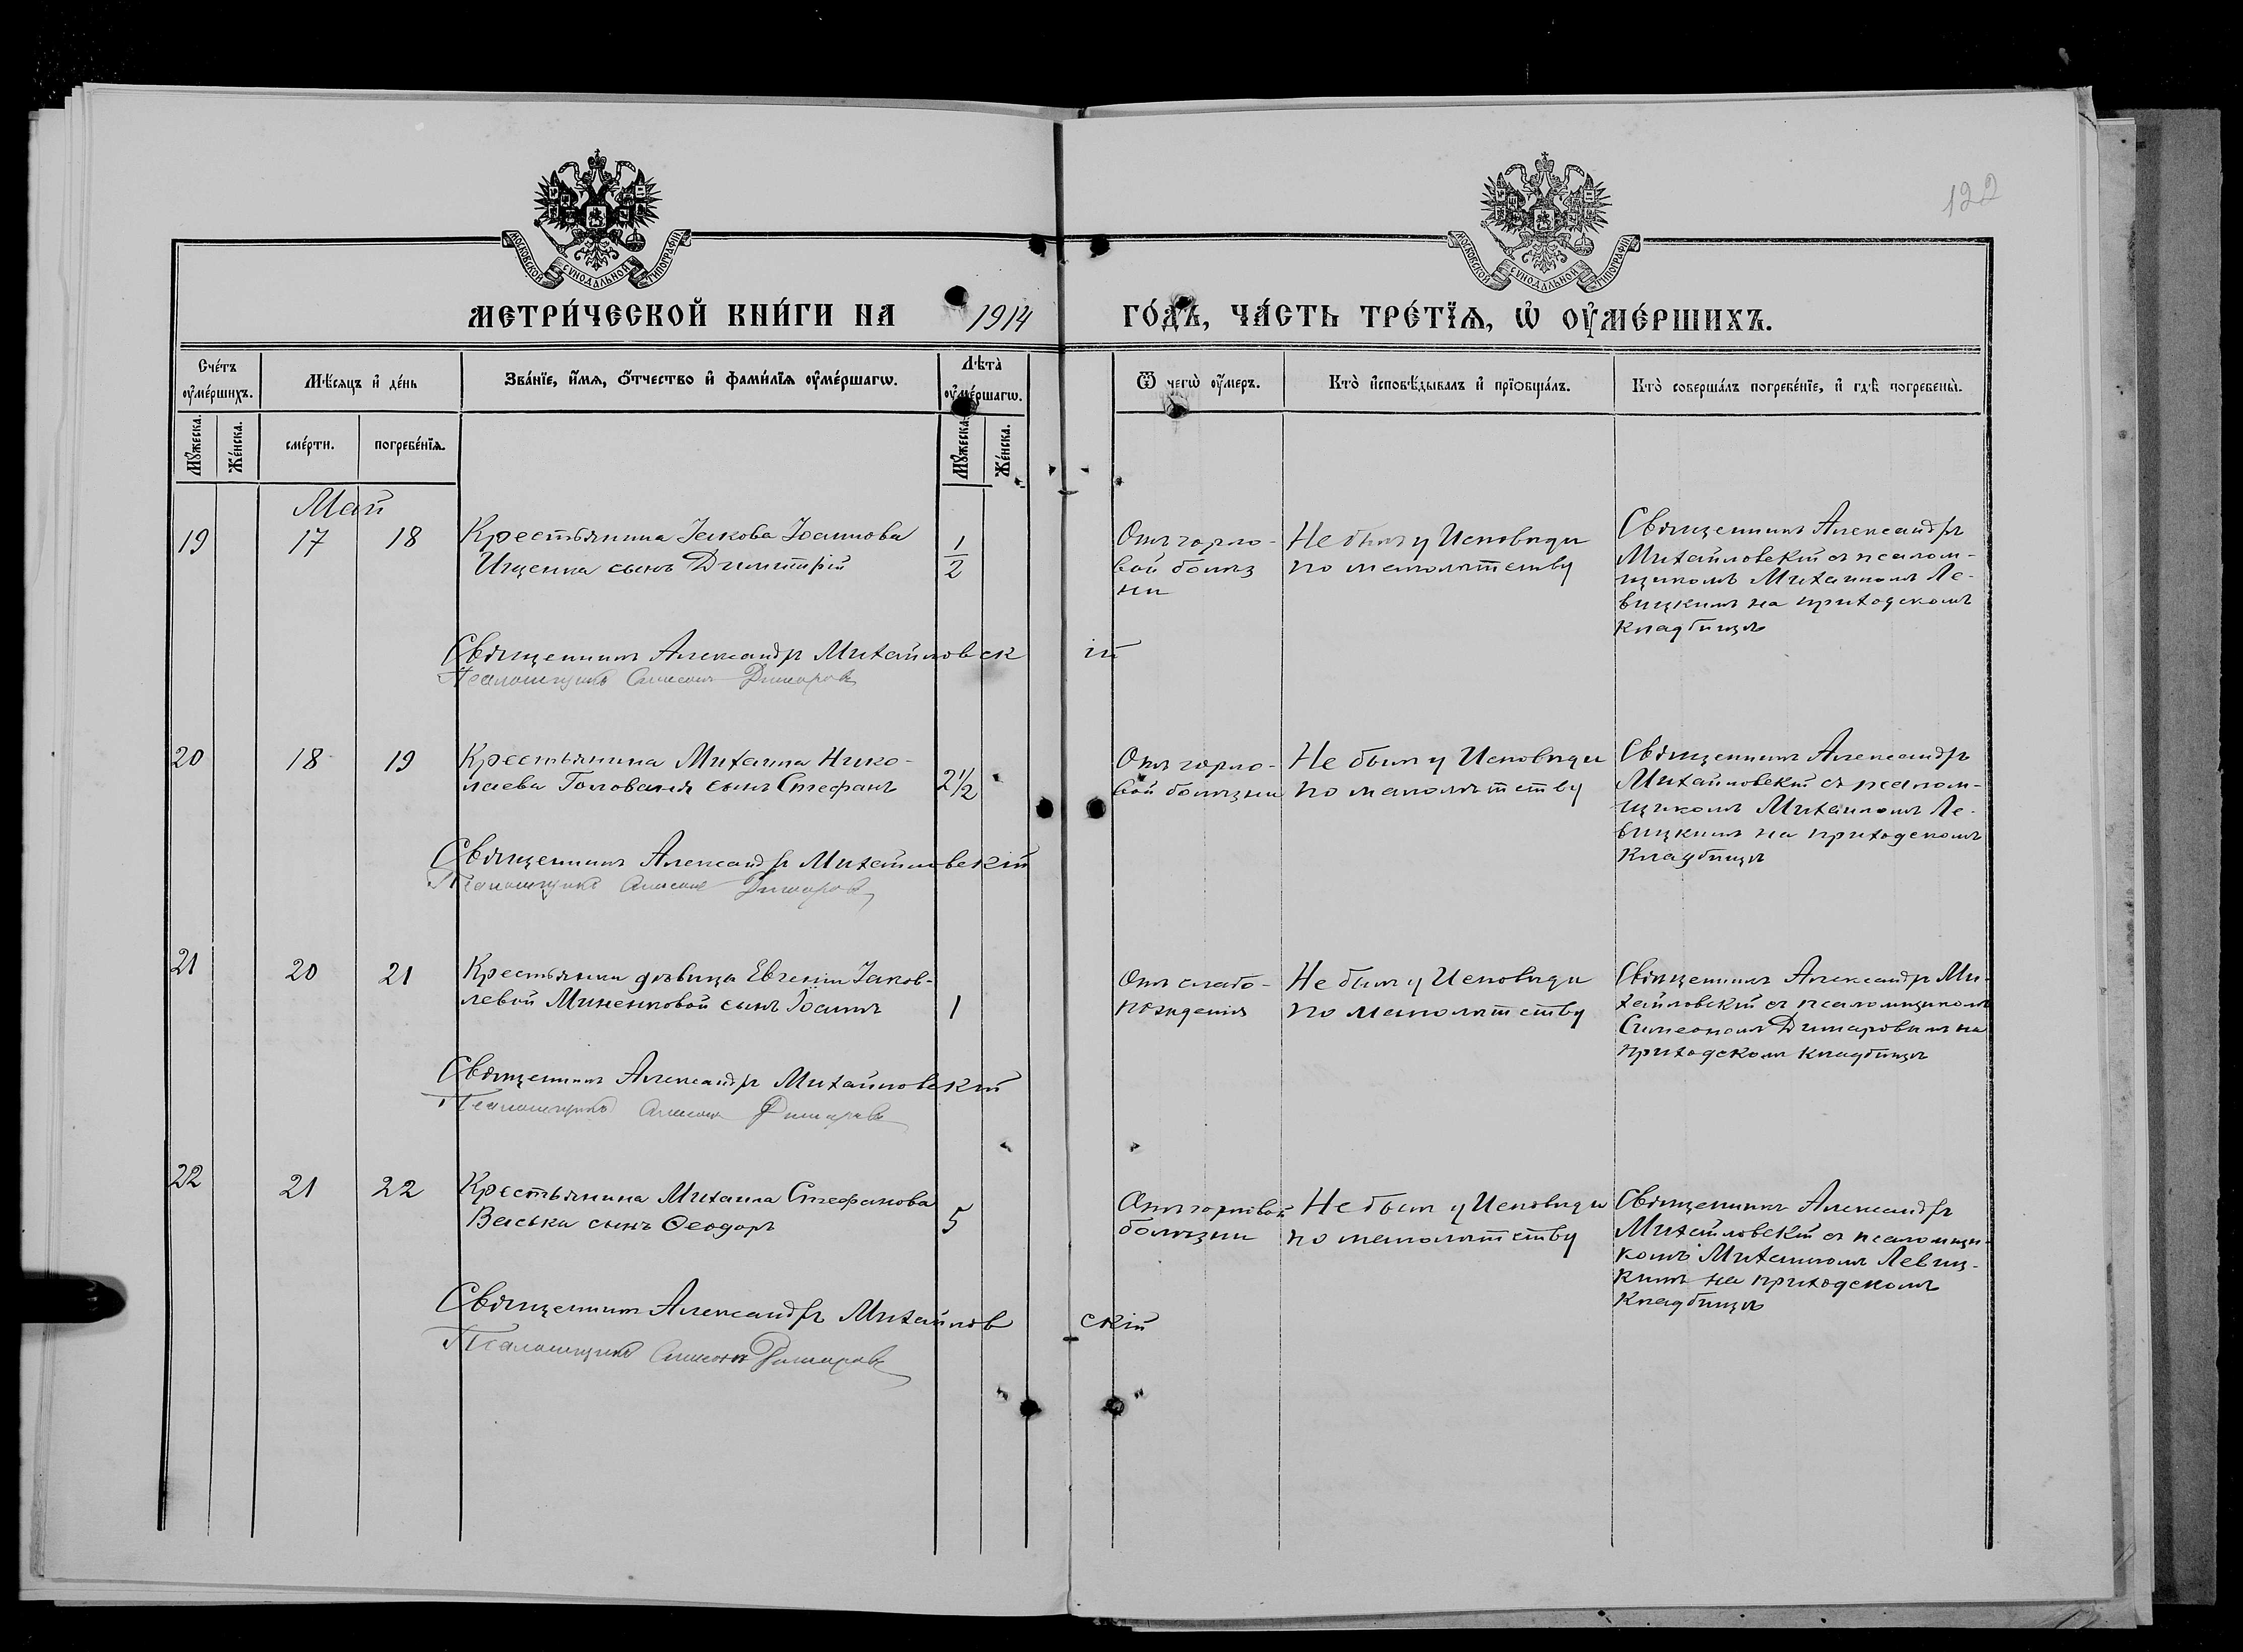 122
МОСКОВСКОЙ СѴНОДАЛЬНОЙ ТИПОГРАФІИ
МОСКОВСКОЙ СѴНОДАЛЬНОЙ ТИПОГРАФІИ
МЕТРИ́ЧЕСКОЙ КНИ́ГИ НА 1914 ГО́ДЪ, ЧА́СТЬ ТРЕ́ТЇѦ, Ѡ҆ ОУ҆МЕ́РШИХЪ.
Сче́тъ оу҆ме́ршихъ.
Мѣ́сѧцъ и҆ де́нь
Зва́нїе, и҆́мѧ, ѻ҆́тчество и҆ фами́лїѧ оу҆ме́ршагѡ.
Лѣ́та оу҆ме́ршагѡ.
Ѿ чегѡ̀ оу҆́меръ.
Кто̀ и҆сповѣ́дывалъ и҆ прїѡбща́лъ.
Кто̀ соверша́лъ погребе́нїе, и҆ гдѣ̀ погребены̀.
Мꙋ́жеска.
Же́нска.
сме́рти.
погребе́нїѧ.
Мꙋ́жеска.
Же́нска.
Май
19 17 18
Крестьянина Іакова Іоаннова
Ищенка сынъ Димитрій
1/2
Отъ горло-
вой болѣз
ни
Не былъ у Исповѣди
по малолѣтству
Священникъ Александръ
Михайловскій съ псалом-
щикомъ Михаиломъ Ле-
вицкимъ на приходскомъ
кладбищѣ
Священникъ Александръ Михайловскій
Псаломщикъ Симеонъ Димаровъ
20 18 19
Крестьянина Михаила Нико-
лаева Голованя сынъ Стефанъ
2½
Отъ горло-
вой болѣзни
Не былъ у Исповѣди
по малолѣтству
Священникъ Александръ
Михайловскій съ псалом-
щикомъ Михаиломъ Ле-
вицкимъ на приходскомъ
кладбищѣ
Священникъ Александръ Михайловскій
Псаломщикъ Симеонъ Димаровъ
21 20 21
Крестьянки дѣвицы Евгеніи Іаков-
левой Миненковой сынъ Іоаннъ
1
Отъ слабо-
рожденія
Не былъ у Исповѣди
по малолѣтству
Священникъ Александръ Ми-
хайловскій съ псаломщикомъ
Симеономъ Димаровымъ на
приходскомъ кладбищѣ
Священникъ Александръ Михайловскій
Псаломщикъ Симеонъ Димаровъ
22 21 22
Крестьянина Михаила Стефанова
Васька сынъ Ѳеодоръ
5
Отъ горловой
болѣзни
Не былъ у Исповѣди
по малолѣтству
Священникъ Александръ
Михайловскій съ псаломщи-
комъ Михаиломъ Левиц-
кимъ на приходскомъ
кладбищѣ
Священникъ Александръ Михайловскій
Псаломщикъ Симеонъ Димаровъ